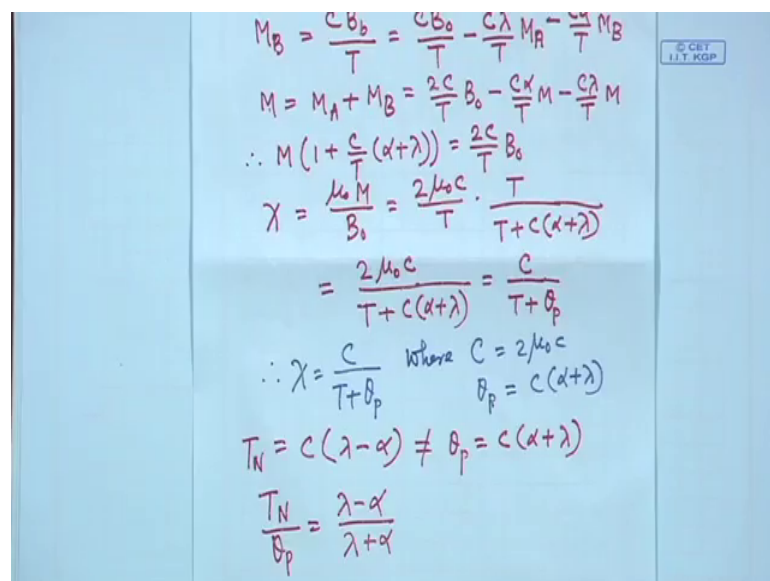 M_B = CB_b/T = CB_0/T - Cλ/T M_A - Cα/T M_B
© CET
I.I.T. KGP
M = M_A + M_B = 2C/T B_0 - Cα/T M - Cλ/T M
∴ M(1 + C/T (α+λ)) = 2C/T B_0
χ = μ_0 M/B_0 = 2μ_0 C/T · T/(T + C(α+λ))
= 2μ_0 C/(T + C(α+λ)) = C/(T + θ_p)
∴ χ = C/(T + θ_p) where C = 2μ_0 c
θ_p = C(α+λ)
T_N = C(λ-α) ≠ θ_p = C(α+λ)
T_N/θ_p = (λ-α)/(λ+α)